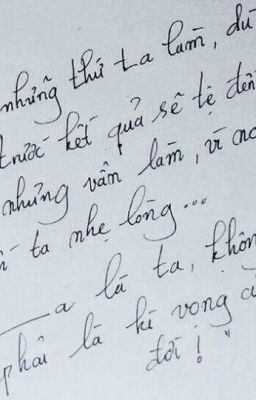 những thứ ta làm, dù
trước kết quả sẽ tệ đến
nhưng vẫn làm, vì nó
ta nhẹ lòng...
a là ta, không
phải là kì vọng củ
đời!"